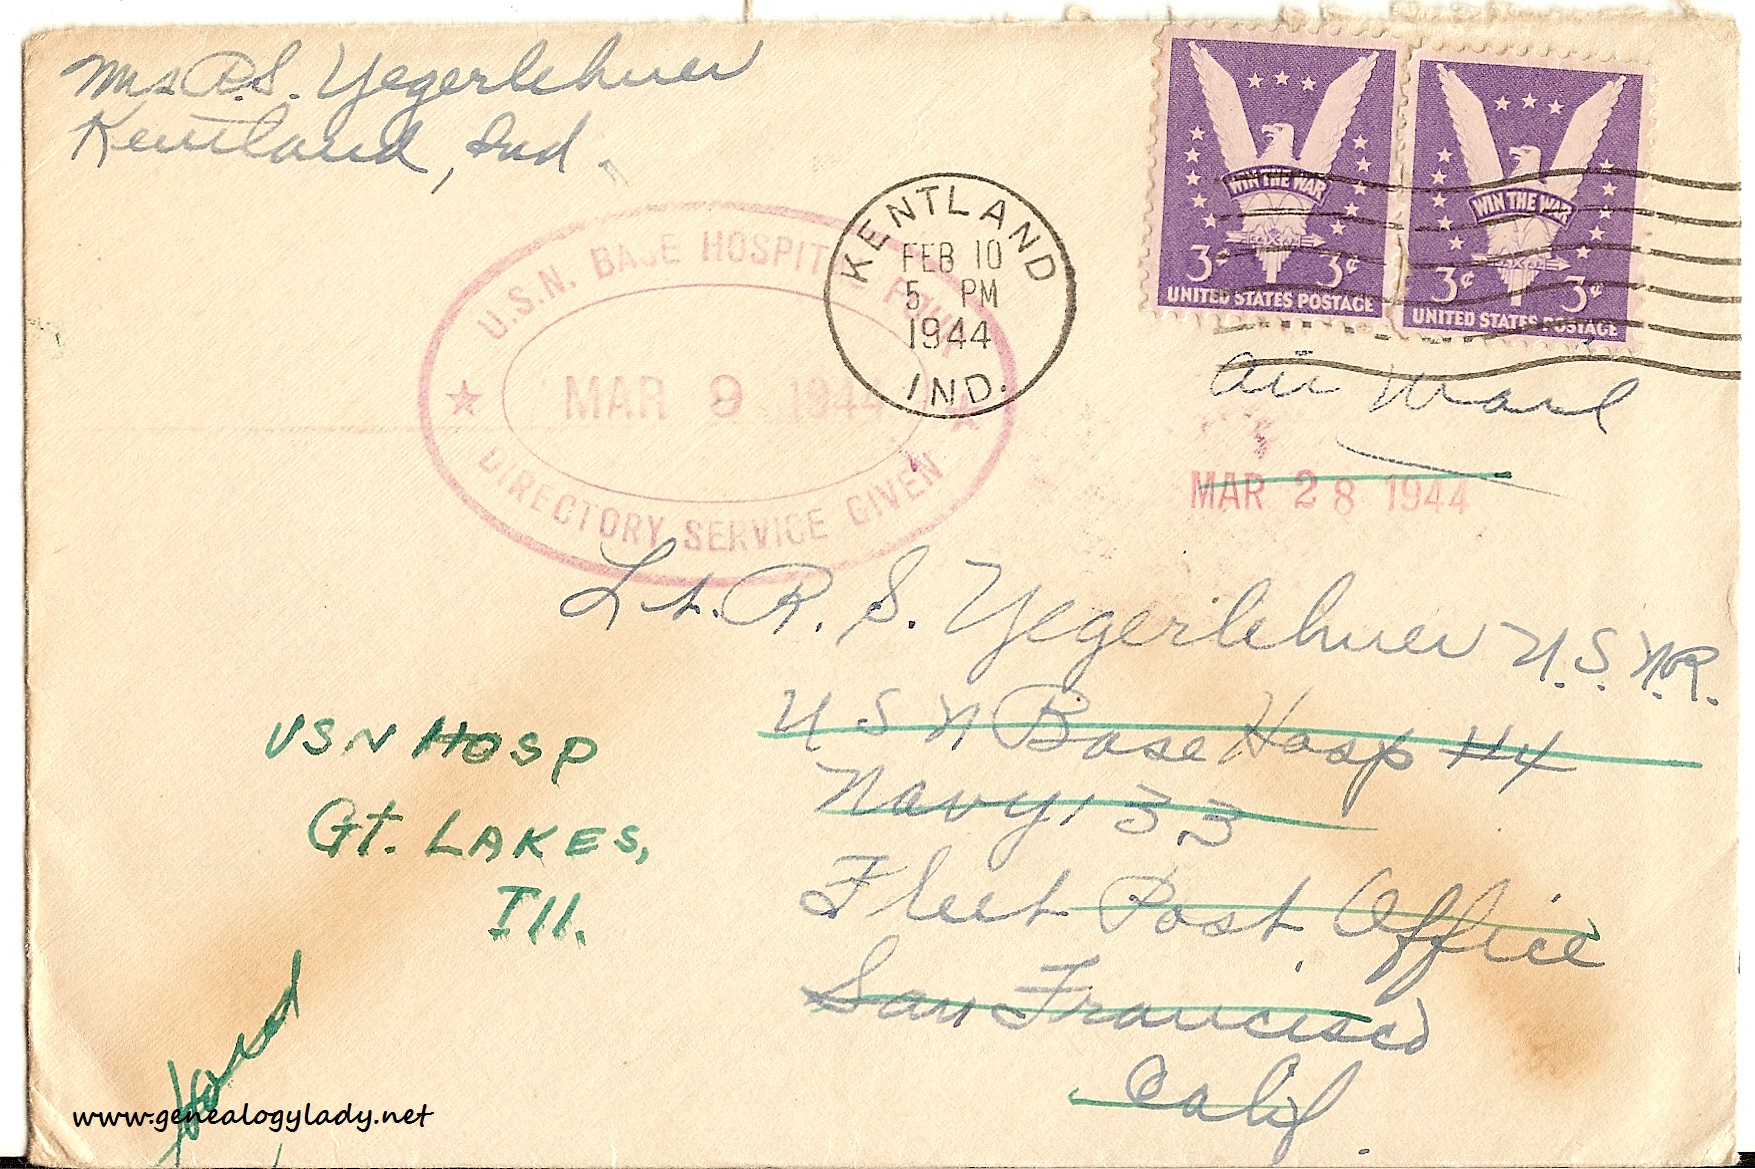 Mrs R.S. Yegerlehner
Kentland, Ind.
WIN THE WAR
3¢ 3¢
UNITED STATES POSTAGE
WIN THE WAR
3¢ 3¢
UNITED STATES POSTAGE
KENTLAND
FEB 10
5 PM
1944
IND.
U.S.N. BASE HOSPITAL FOUR
MAR 9 1944
DIRECTORY SERVICE GIVEN
Air Mail
MAR 28 1944
Lt. R. S. Yegerlehner U.S.N.R.
U S N Base Hosp #4
Navy 133
Fleet Post Office
San Francisco
Calif.
USN HOSP
Gt. LAKES,
Ill.
www.genealogylady.net